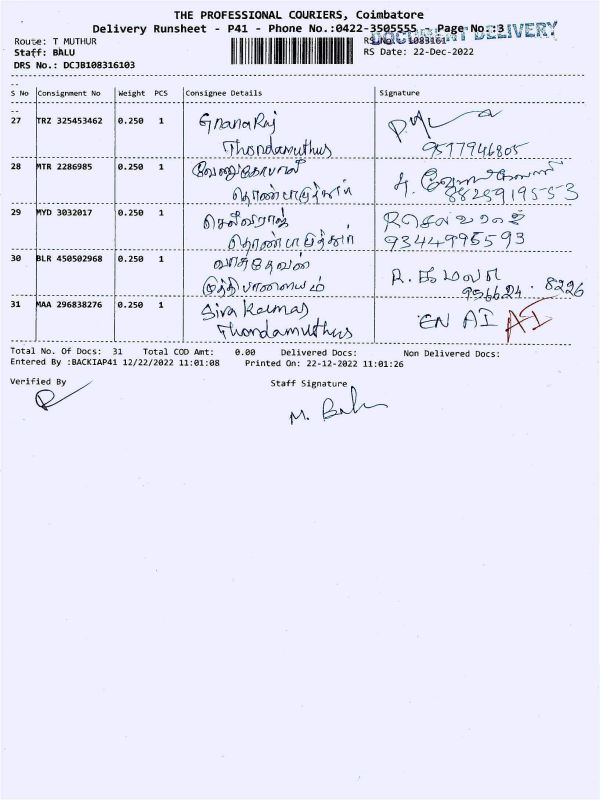 THE PROFESSIONAL COURIERS, Coimbatore
Delivery Runsheet - P41 - Phone No.:0422-3505555 - Page No.:3
DOCUMENT DELIVERY
Route: T MUTHUR RS No.: 1083161
Staff: BALU RS Date: 22-Dec-2022
DRS No.: DCJB108316103
S No Consignment No Weight PCS Consignee Details Signature
27 TRZ 325453462 0.250 1 Gnana Raj
Thondamuthur 9517946805
28 MTR 2286985 0.250 1 வேணுகோபால்
தொண்டாமுத்தூர் 8825919553
29 MYD 3032017 0.250 1 செல்வராஜ் R செல்வராஜ்
தொண்டாமுத்தூர் 9344995593
30 BLR 450502968 0.250 1 வாசுதேவன் R. கமலா
முத்திபாளையம் 956624 8226
31 MAA 296838276 0.250 1 Siva Kumar EN AI AI
Thondamuthur
Total No. Of Docs: 31 Total COD Amt: 0.00 Delivered Docs: Non Delivered Docs:
Entered By :BACKIAP41 12/22/2022 11:01:08 Printed On: 22-12-2022 11:01:26
Verified By Staff Signature
M. Balu